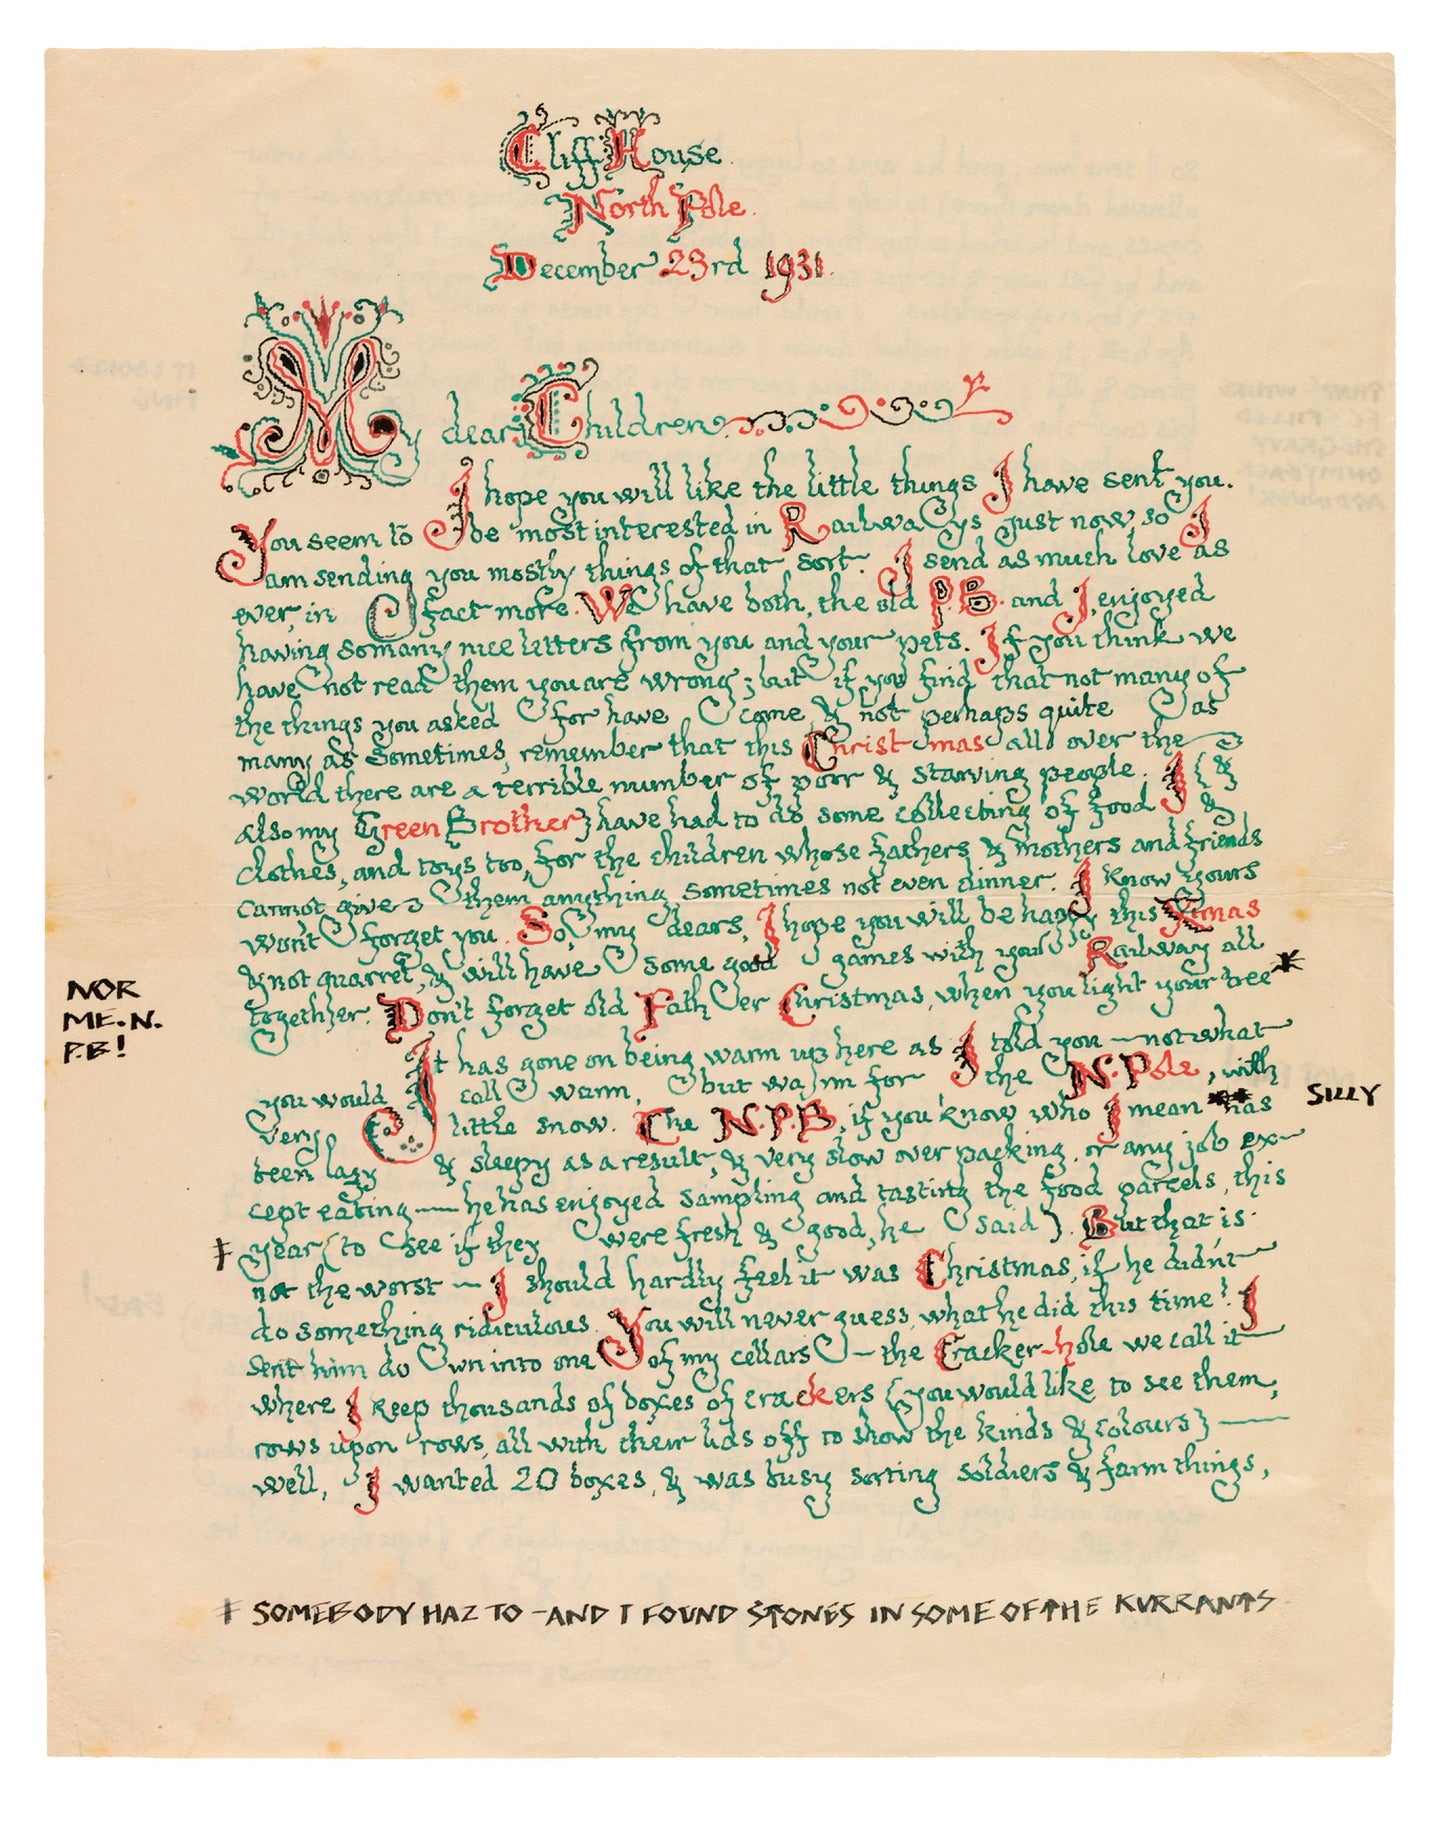 Cliff House
North Pole
December 23rd 1931.
My dear Children
I hope you will like the little things I have sent you.
You seem to be most interested in Railways just now, so I
am sending you mostly things of that sort. I send as much love as
ever, in fact more. We have both, the old P.B. and I, enjoyed
having so many nice letters from you and your pets. If you think we
have not read them you are wrong; but if you find that not many of
the things you asked for have come, & not perhaps quite as
many as sometimes, remember that this Christmas all over the
world there are a terrible number of poor & starving people. I (&
also my Green Brother) have had to do some collecting of food &
clothes, and toys too, for the children whose fathers & mothers and friends
cannot give them anything, sometimes not even dinner. I know yours
won't forget you. So, my dears, I hope you will be happy this Xmas
& not quarrel, & will have some good games with your Railway all
together. Don't forget old Father Christmas, when you light your tree *
NOR
ME. N.
P.B!
It has gone on being warm up here as I told you — not what
you would call warm, but warm for the N. Pole, with
very little snow. The N.P.B, if you know who I mean ** has
SILLY
been lazy & sleepy as a result, & very slow over packing, or any job ex-
cept eating — he has enjoyed sampling and tasting the food parcels, this
ǂ year (to see if they were fresh & good, he said). But that is
not the worst — I should hardly feel it was Christmas, if he didn't
do something ridiculous. You will never guess, what he did this time! I
sent him down into one of my cellars — the Cracker-hole we call it —
where I keep thousands of boxes of crackers (you would like to see them,
rows upon rows, all with their lids off to show the kinds & colours) —
well, I wanted 20 boxes, & was busy sorting soldiers & farm things,
ǂ SOMEBODY HAZ TO – AND I FOUND STONES IN SOME OF THE KURRANTS